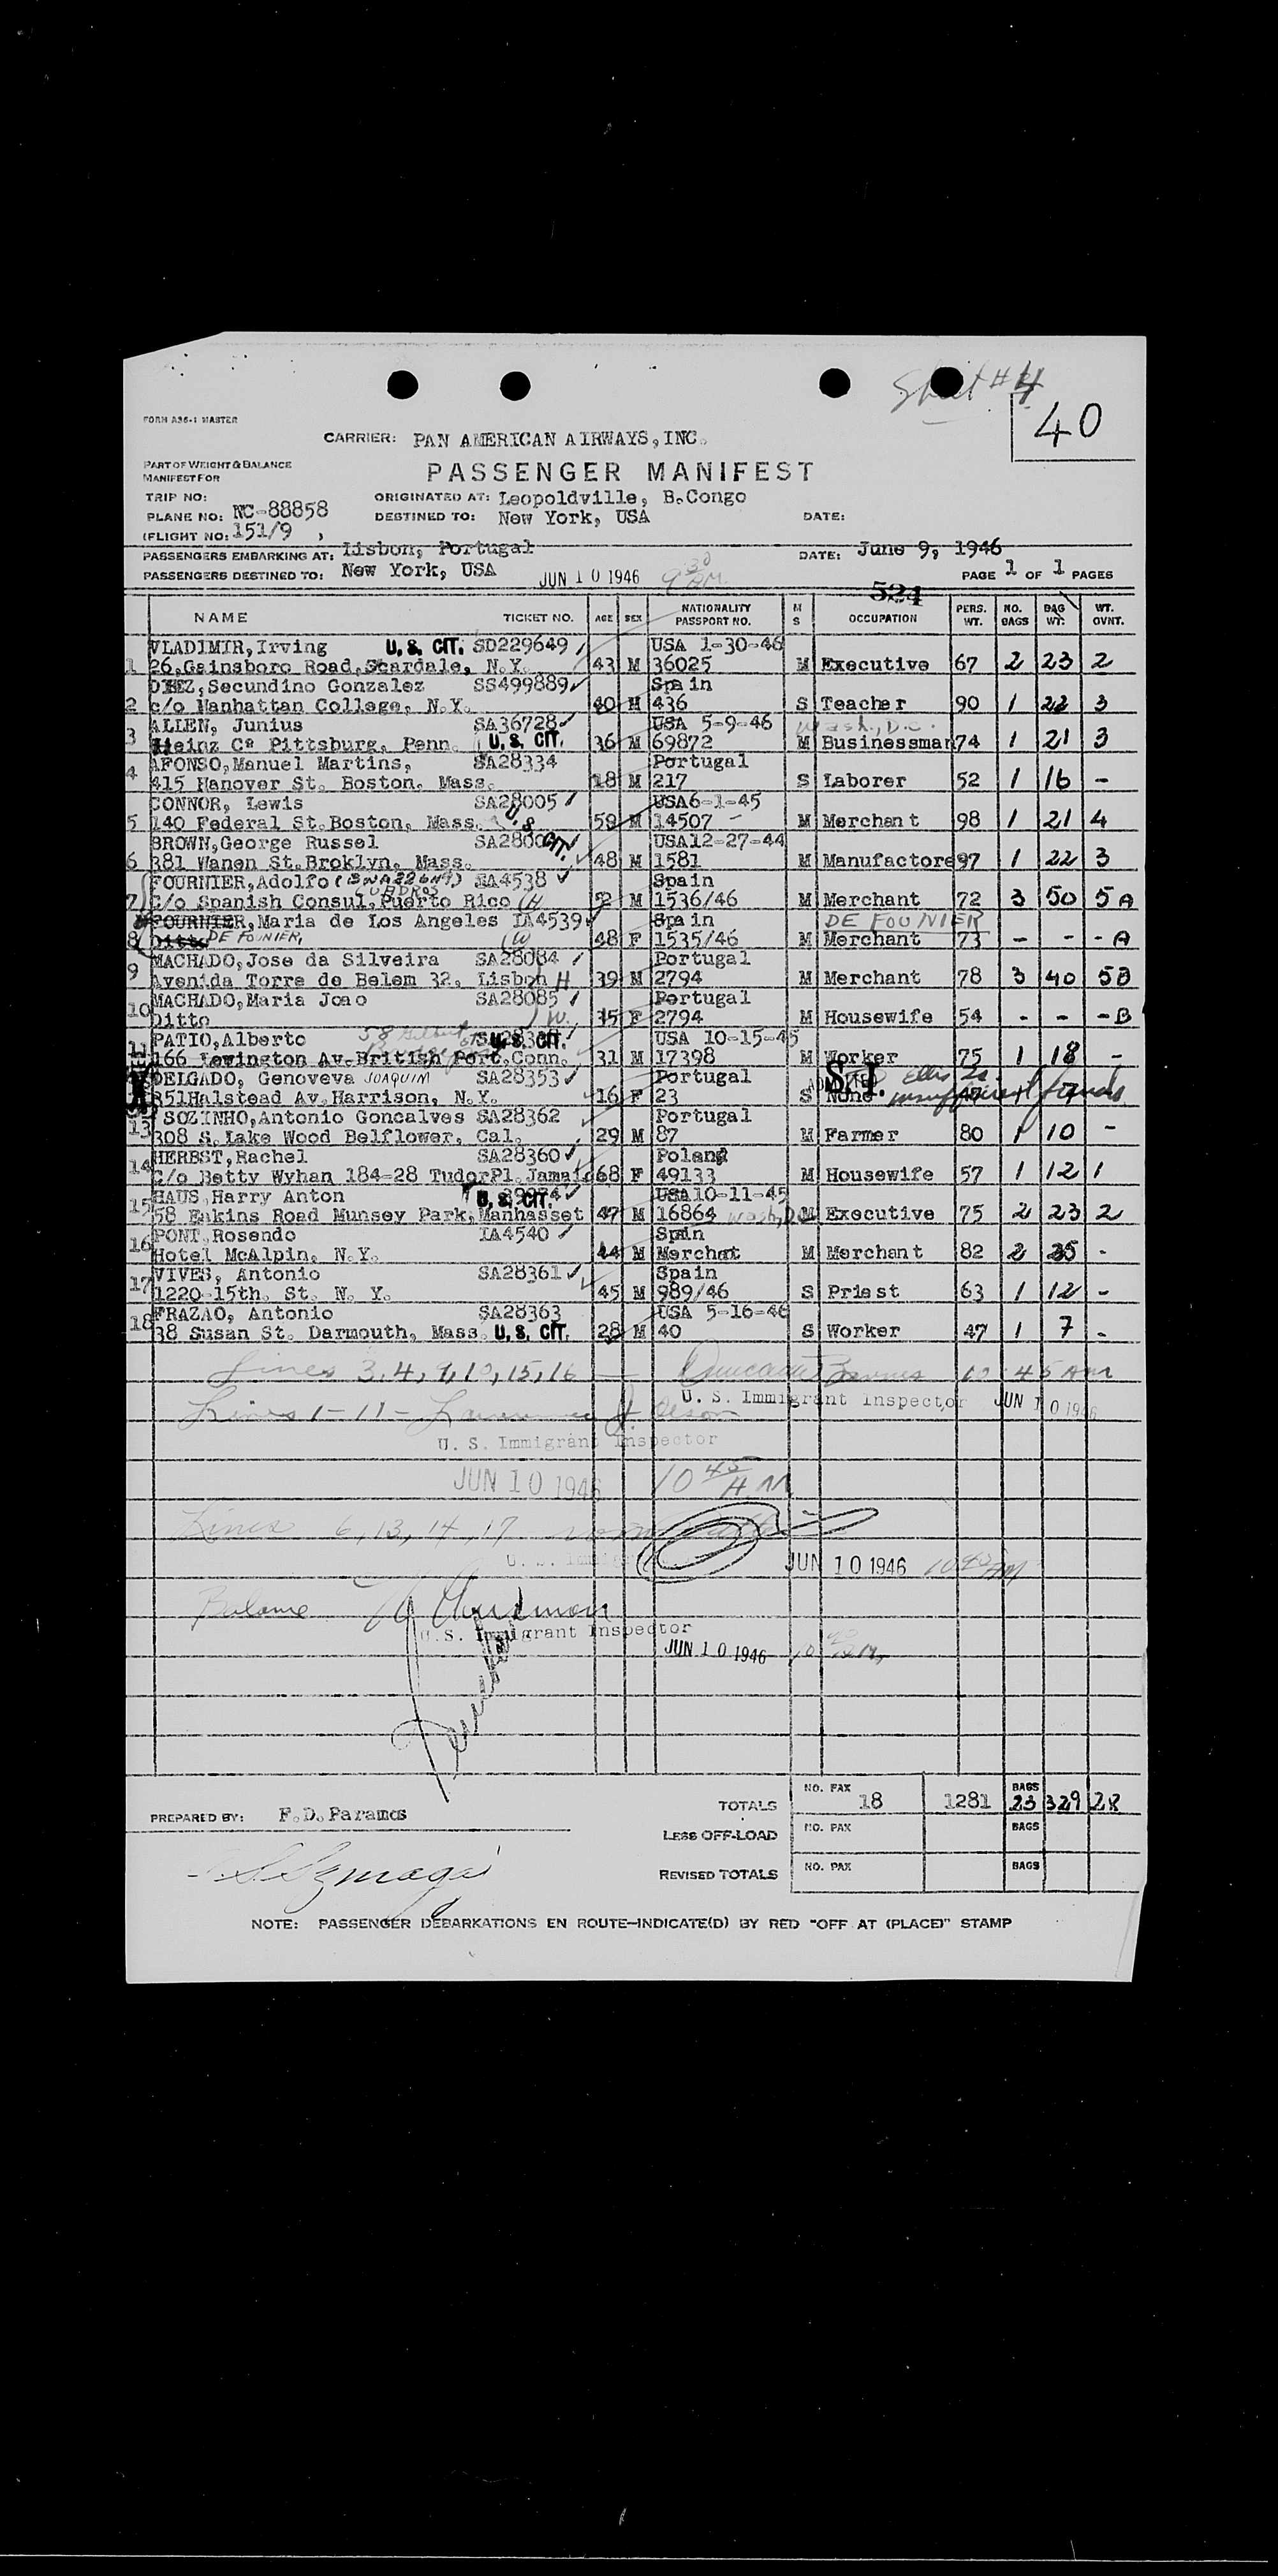 Sheet #4
40
FORM A36-1 MASTER
CARRIER: PAN AMERICAN AIRWAYS, INC.
PART OF WEIGHT & BALANCE
MANIFEST FOR
PASSENGER MANIFEST
TRIP NO:
ORIGINATED AT: Leopoldville, B.Congo
PLANE NO: NC-88858
DESTINED TO: New York, USA
DATE:
(FLIGHT NO: 151/9 )
PASSENGERS EMBARKING AT: Lisbon, Portugal
DATE: June 9, 1946
PASSENGERS DESTINED TO: New York, USA
JUN 10 1946 9 30 AM
PAGE 1 OF 1 PAGES
524
NAME TICKET NO. AGE SEX NATIONALITY PASSPORT NO. M S OCCUPATION PERS. WT. NO. BAGS BAG WT. WT. OVNT.
VLADIMIR, Irving U. S. CIT. SD229649 USA 1-30-46
1 26, Gainsboro Road, Scardale, N.Y. 43 M 36025 M Executive 67 2 23 2
DIEZ, Secundino Gonzalez SS499889 Spain
2 c/o Manhattan College, N.Y. 40 M 436 S Teacher 90 1 22 3
ALLEN, Junius SA36728 USA 5-9-46 Wash., D.C.
3 Heinz Cº Pittsburg, Penn. U. S. CIT. 36 M 69872 M Businessman 74 1 21 3
AFONSO, Manuel Martins, SA28334 Portugal
4 415 Hanover St. Boston. Mass. 18 M 217 S Laborer 52 1 16 -
CONNOR, Lewis SA28005 USA6-1-45
5 140 Federal St. Boston, Mass. U. S. CIT. 58 M 14507 - M Merchant 98 1 21 4
BROWN, George Russel USA12-27-44
6 381 Wanen St. Broklyn, Mass. 48 M 1581 M Manufactore 97 1 22 3
FOURNIER, Adolfo CUADROS IA4538 Spain
7 C/o Spanish Consul, Puerto Rico (H 52 M 1536/46 M Merchant 72 3 50 5 A
FOURNIER, Maria de Los Angeles IA4539 Spain DE FOUNIER
8 Ditto DE FOUNIER, (W) 48 F 1535/46 M Merchant 73 - - - A
MACHADO, Jose da Silveira SA28084 Portugal
9 Avenida Torre de Belem 32, Lisbon H 39 M 2794 M Merchant 78 3 40 5 B
MACHADO, Maria Joao SA28085 Portugal
10 Ditto W. 35 F 2794 M Housewife 54 - - - B
PATIO, Alberto 58 Gilbert St U. S. CIT. USA 10-15-45
11 166 Lewington Av-British Port, Conn. 31 M 17398 M Worker 75 1 18 -
DELGADO, Genoveva JOAQUIM SA28353 Portugal S. I. Ellis Is
R51Halstead Av. Harrison, N.Y. 16 F 23 S None insufficient funds
SOZINHO, Antonio Goncalves SA28362 Portugal
13 308 S. Lake Wood Belflower, Cal. 29 M 87 M Farmer 80 1 10 -
HERBST, Rachel SA28360 Poland
14 C/o Betty Wyhan 184-28 TudorPl. Jamaic 68 F 49133 M Housewife 57 1 12 1
HAUS, Harry Anton U. S. CIT. USA10-11-45
15 58 Eakins Road Munsey Park, Manhasset 47 M 16864 Wash, D.C. M Executive 75 2 23 2
PONT, Rosendo IA4540 Spain
16 Hotel McAlpin, N.Y. 44 M Merchat M Merchant 82 2 35 -
VIVES, Antonio SA28361 Spain
17 1220-15th. St. N. Y. 45 M 989/46 S Priest 63 1 12 -
FRAZAO, Antonio SA28363 USA 5-16-46
18 38 Susan St. Darmouth, Mass. U. S. CIT. 28 M 40 S Worker 47 1 7 -
Lines 3, 4, 9, 10, 15, 16 10 45 AM
U. S. Immigrant Inspector JUN 10 1946
Lines 1-11-
U. S. Immigrant Inspector
JUN 10 1946 10 45 A M
Lines 6, 13, 14, 17
JUN 10 1946 10 40 AM
Balance
U. S. Immigrant Inspector
JUN 10 1946
PREPARED BY: F.D. Paramos
TOTALS NO. PAX 18 1281 BAGS 23 329 28
LESS OFF-LOAD NO. PAX BAGS
REVISED TOTALS NO. PAX BAGS
NOTE: PASSENGER DEBARKATIONS EN ROUTE—INDICATE(D) BY RED "OFF AT (PLACE)" STAMP